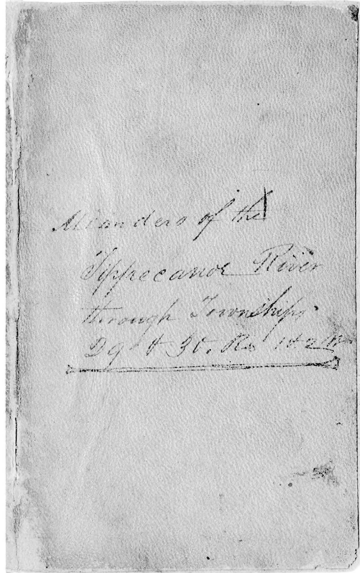 Meanders of the
Tippecanoe River
through Townships
29 & 30. Rs 1 & 2 W